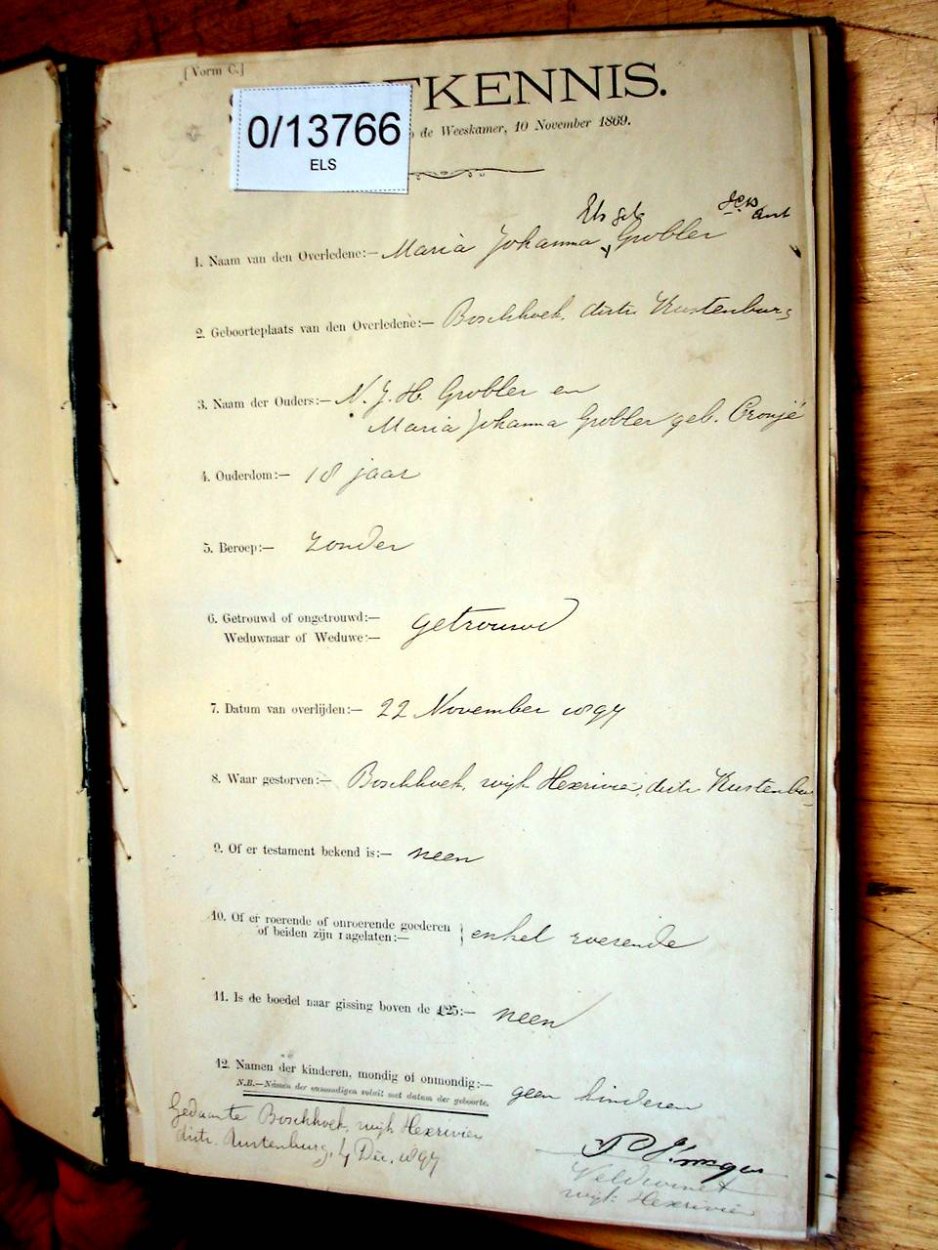 [Vorm C.]
KENNIS.
0/13766
ELS
de Weeskamer, 10 November 1869.
Els geb
1. Naam van den Overledene:— Maria Johanna Grobler
2. Geboorteplaats van den Overledene:— Boschhoek, distr. Rustenburg
3. Naam der Ouders:— N. J. H. Grobler en
Maria Johanna Grobler geb. Cronjé
4. Ouderdom:— 18 jaar
5. Beroep:— Zonder
6. Getrouwd of ongetrouwd:— getrouwd
Weduwnaar of Weduwe:—
7. Datum van overlijden:— 22 November 1897
8. Waar gestorven:— Boschhoek, wijk Hexrivier, distr. Rustenbu
9. Of er testament bekend is:— neen
10. Of er roerende of onroerende goederen
of beiden zijn nagelaten:— enkel roerende
11. Is de boedel naar gissing boven de £25:— neen
12. Namen der kinderen, mondig of onmondig:— geen kinderen
N.B.—Namen der onmondigen voluit met datum der geboorte.
Gedaan te Boschhoek, wijk Hexrivier
distr. Rustenburg, 4 Dec. 1897
Veldcornet
wijk Hexrivier